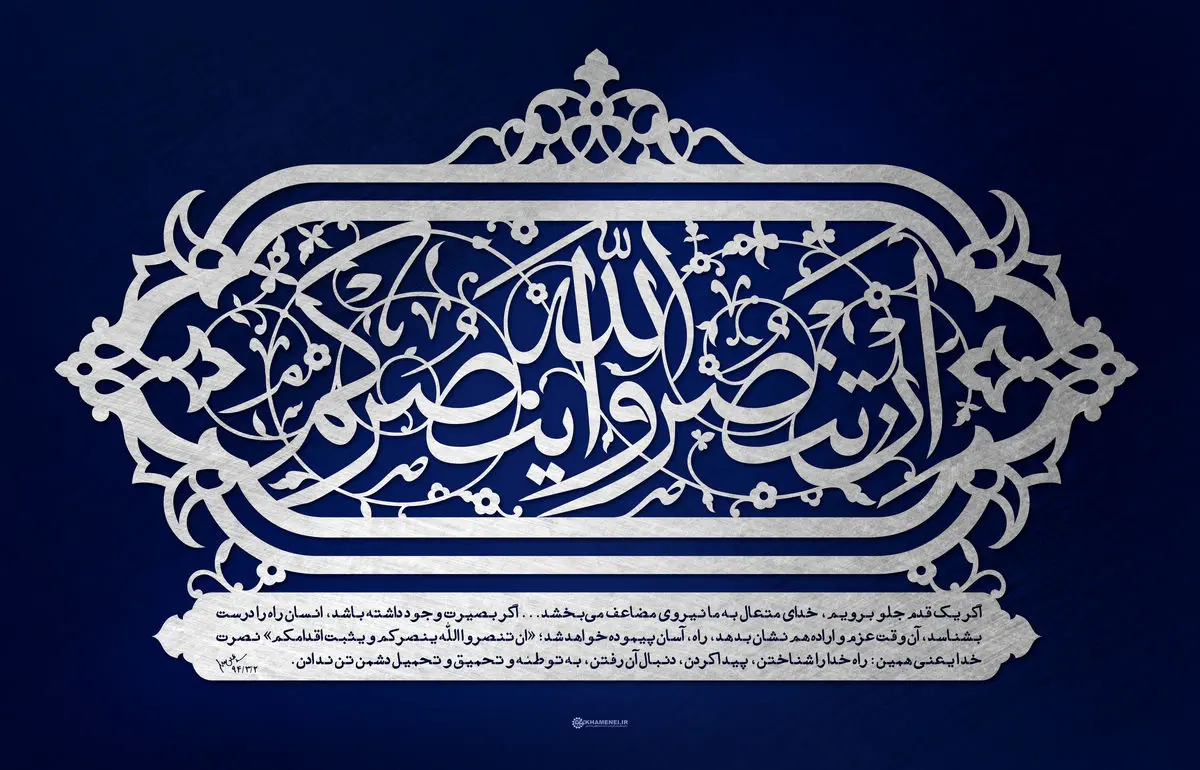 ان تنصروا الله ینصرکم
اگر یک قدم جلو برویم، خدای متعال به ما نیروی مضاعف می‌بخشد... اگر بصیرت وجود داشته باشد، انسان راه را درست
بشناسد، آن وقت عزم و اراده هم نشان بدهد، راه، آسان پیموده خواهد شد؛ «ان تنصروا الله ینصرکم و یثبت اقدامکم» نصرت
خدا یعنی همین: راه خدا را شناختن، پیدا کردن، دنبال آن رفتن، به توطئه و تحمیق و تحمیل دشمن تن ندادن.
۹۴/۳/۲
KHAMENEI.IR